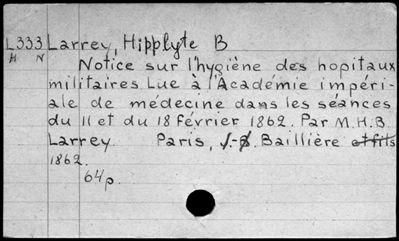 L333 Larrey, Hipplyte B
H N
Notice sur l'hygiène des hopitaux
militaires. Lue à l'Académie impéri-
ale de médecine dans les séances
du 11 et du 18 février 1862. Par M.H.B.
Larrey. Paris, J.-B. Baillière et fils
1862.
64p.